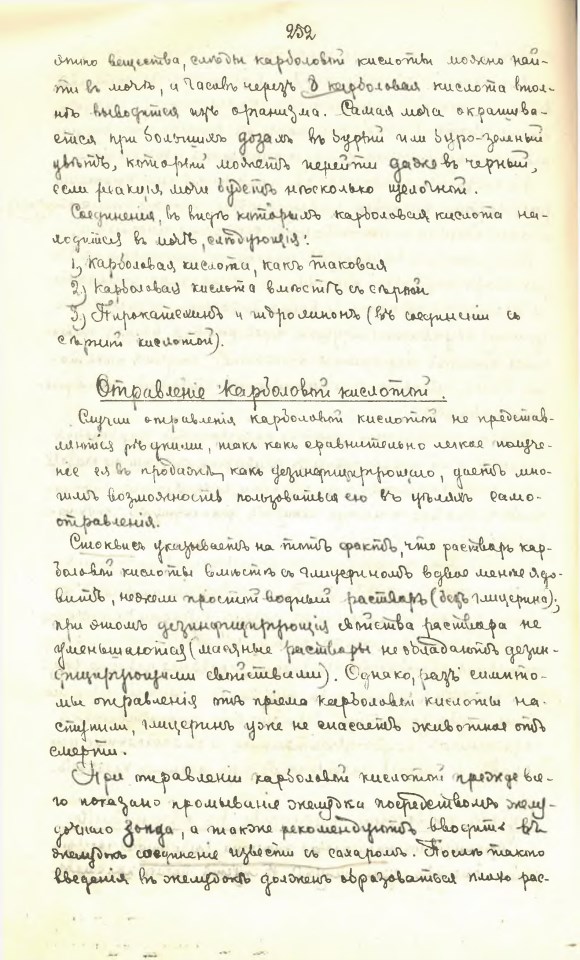 252
этого вещества, слѣды карболовой кислоты можно най-
ти въ мочѣ, и часовъ черезъ 8 карболовая кислота впол-
нѣ выводится изъ организма. Самая моча окрашива-
ется при большихъ дозахъ въ бурый или буро-зеленый
цвѣтъ, который можетъ перейти даже въ черный,
если реакція мочи будетъ нѣсколько щелочной.
Соединенія, въ видѣ которыхъ карболовая кислота на-
ходится въ мочѣ, слѣдующія:
1) Карболовая кислота, какъ таковая
2) Карболовая кислота вмѣстѣ съ сѣрной
3) Пирокатехинъ и гидрохинонъ (въ соединеніи съ
сѣрной кислотой).
Отравленіе карболовой кислотой.
Случаи отравленія карболовой кислотой не представ-
ляются рѣдкими, такъ какъ сравнительно легкое получе-
ніе ея въ продажѣ, какъ дезинфицирующаго, даетъ мно-
гимъ возможность пользоваться ею въ цѣляхъ само-
отравленія.
Стоквисъ указываетъ на тотъ фактъ, что растворъ кар-
боловой кислоты вмѣстѣ съ глицериномъ вдвое менѣе ядо-
витъ, нежели простой водный растворъ (безъ глицерина);
при этомъ дезинфицирующія свойства раствора не
уменьшаются (масляные растворы не обладаютъ дезин-
фицирующими свойствами). Однако, разъ симпто-
мы отравленія отъ пріема карболовой кислоты на-
ступили, глицеринъ уже не спасаетъ животное отъ
смерти.
При отравленіи карболовой кислотой прежде все-
го показано промываніе желудка посредствомъ желу-
дочнаго зонда, а также рекомендуютъ вводить въ
желудокъ соединеніе извести съ сахаромъ. Послѣ такого
введенія въ желудкѣ долженъ образоваться плохо рас-